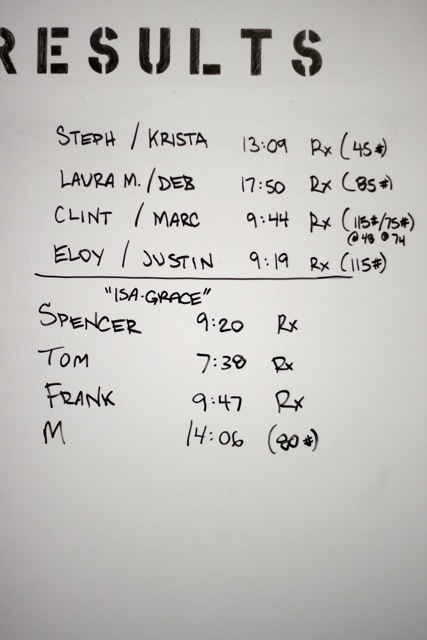 RESULTS
STEPH / KRISTA 13:09 Rx (45#)
LAURA M. / DEB 17:50 Rx (85#)
CLINT / MARC 9:44 Rx (115#/75#)
@48 @74
ELOY / JUSTIN 9:19 Rx (115#)
"ISA-GRACE"
SPENCER 9:20 Rx
TOM 7:38 Rx
FRANK 9:47 Rx
M 14:06 (80#)